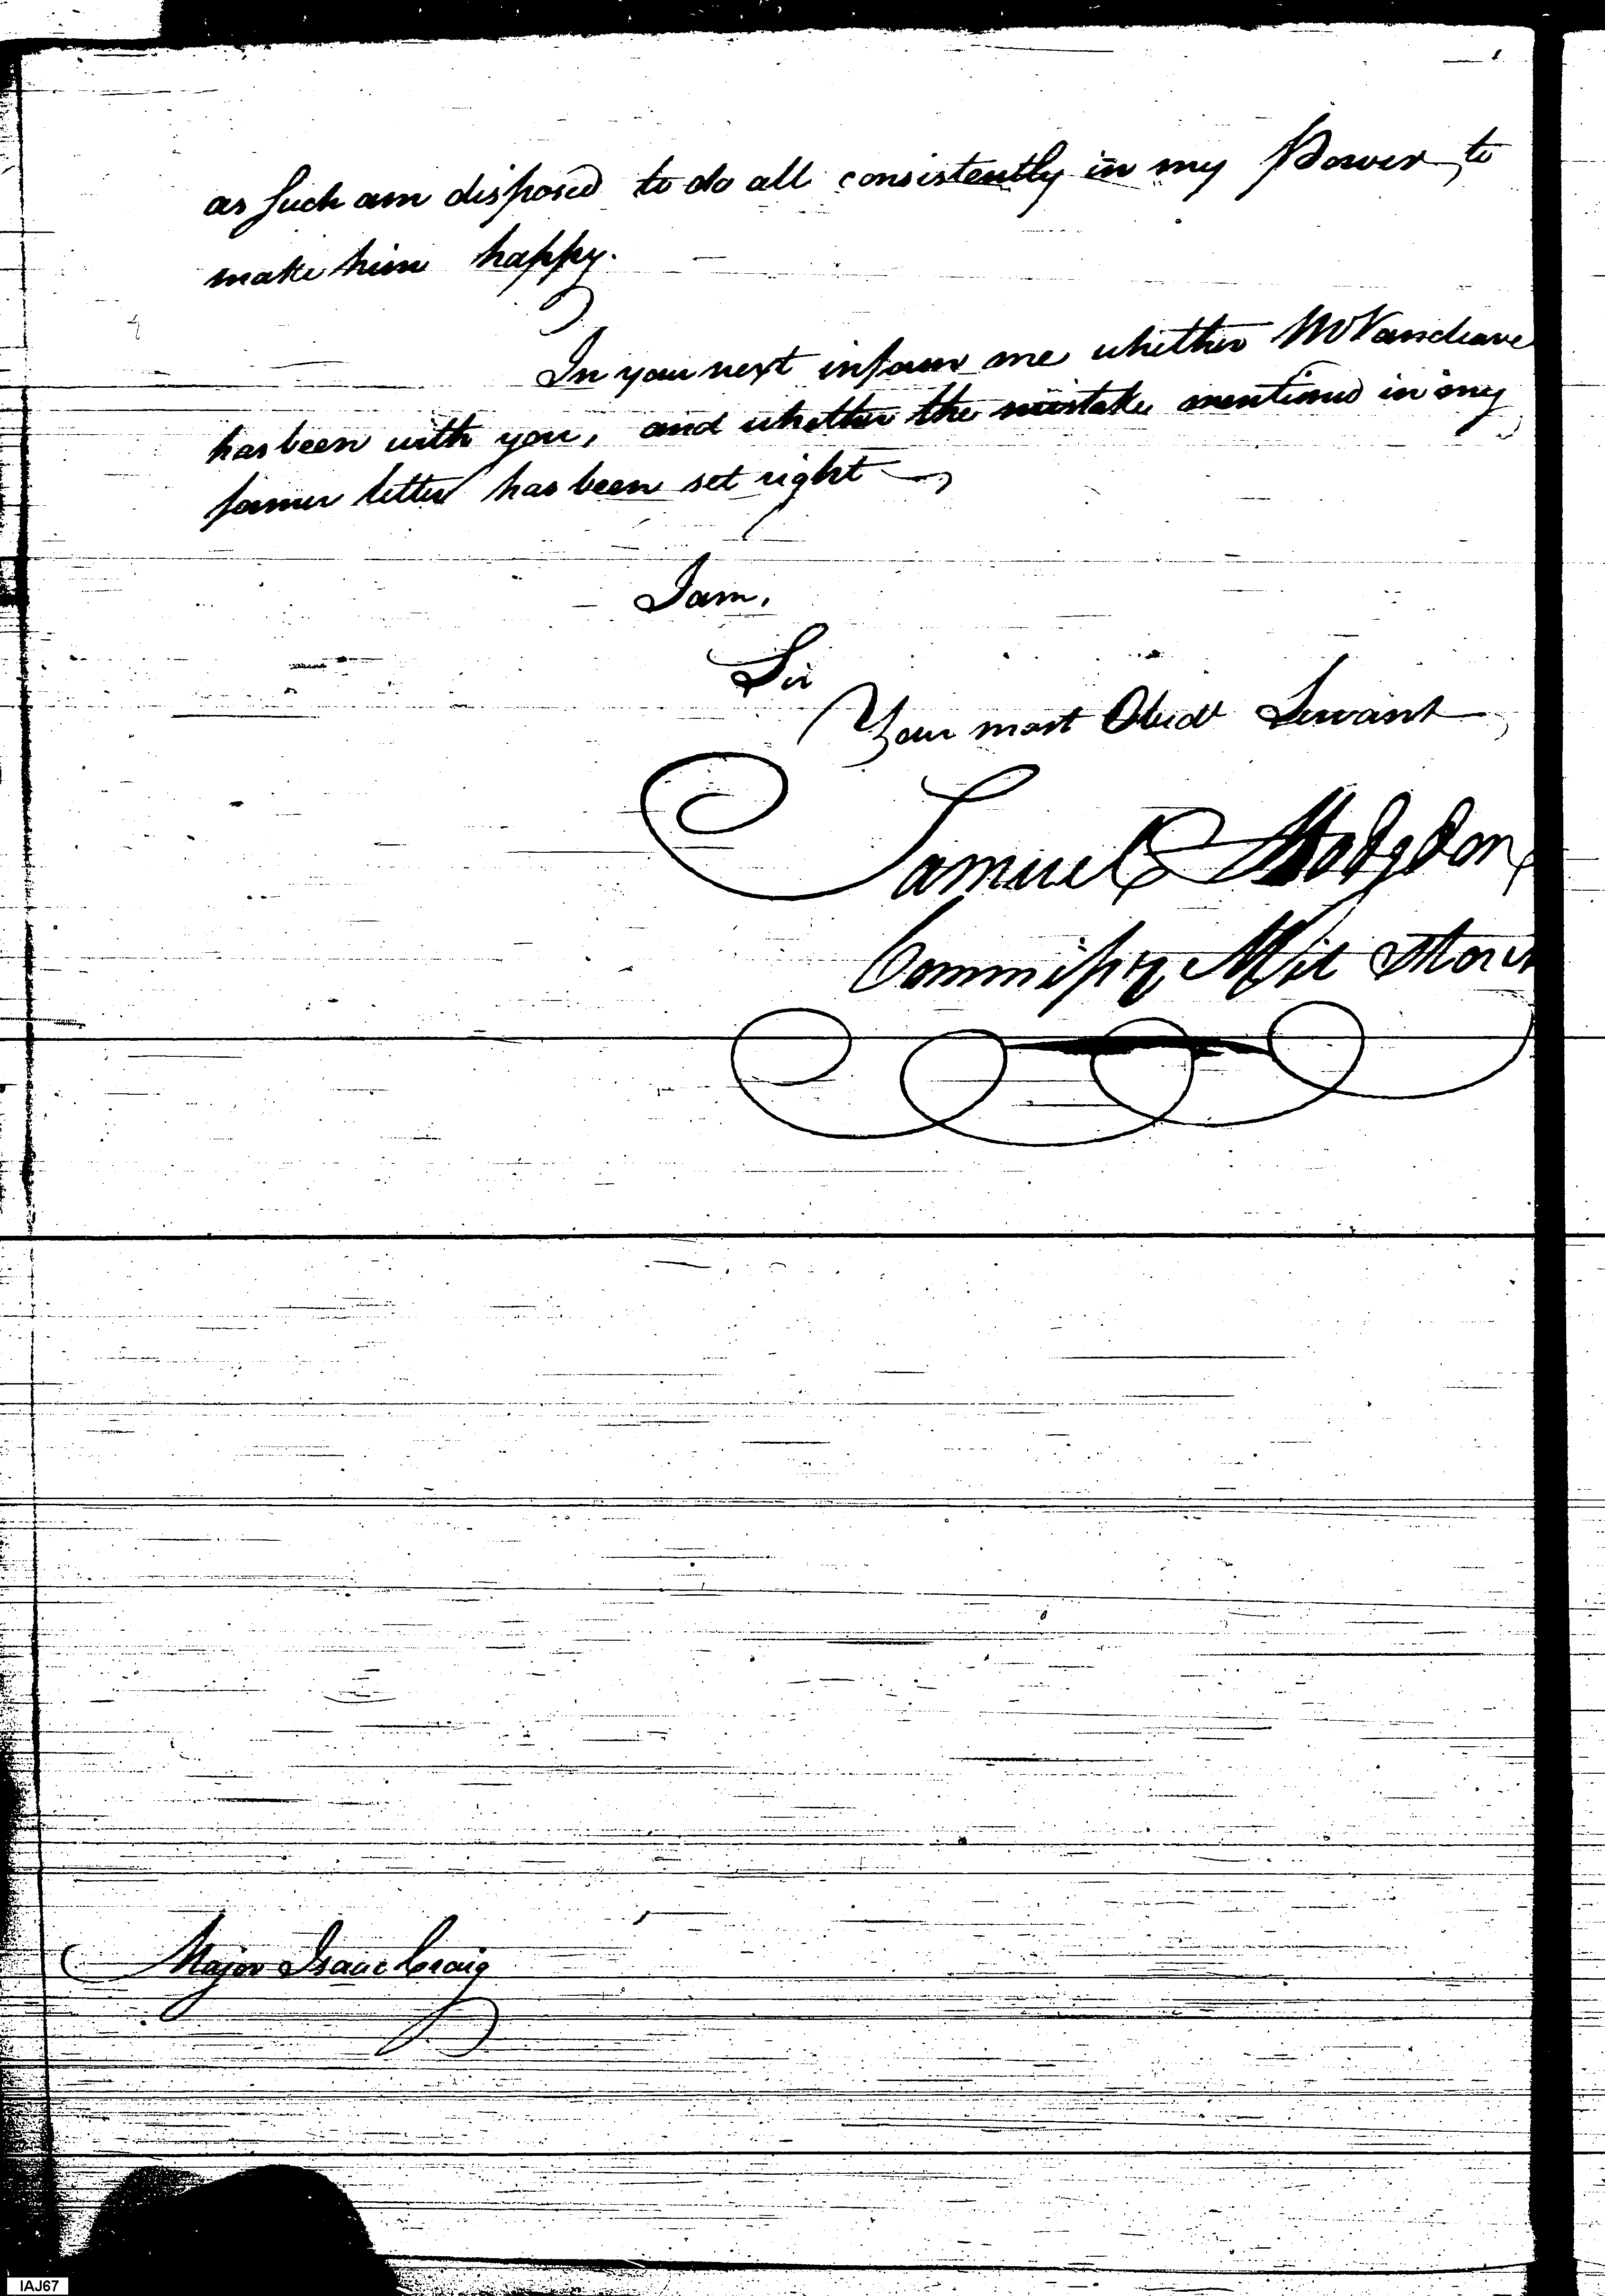 as such am disposed to do all consistently in my Power, to
make him happy.
In your next inform me whether Mr Vancleave
has been with you, and whether the mistake mentioned in my
former letter has been set right
I am,
Sir
Your most Obedt Servant
Samuel Hodgdon
Commissy Mil Stores
Major Isaac Craig
IAJ67